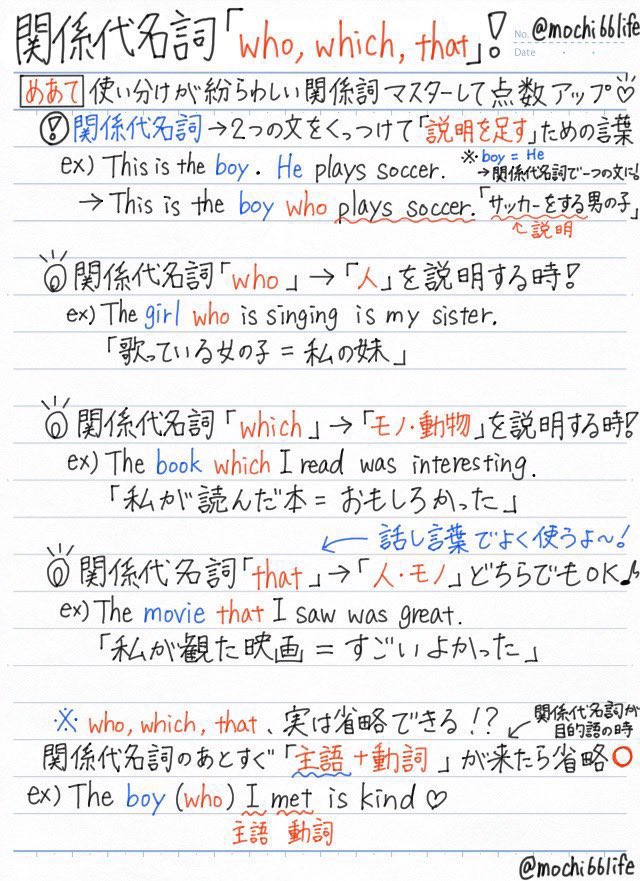 関係代名詞「who, which, that」!
No. @mochi66life
Date
めあて 使い分けが紛らわしい関係詞マスターして点数アップ♡
! 関係代名詞→2つの文をくっつけて「説明を足す」ための言葉
ex) This is the boy. He plays soccer.
※boy = He
→関係代名詞で一つの文に!
→ This is the boy who plays soccer.「サッカーをする男の子」
↑説明
関係代名詞「who」→「人」を説明する時!
ex) The girl who is singing is my sister.
「歌っている女の子 = 私の妹」
関係代名詞「which」→「モノ・動物」を説明する時!
ex) The book which I read was interesting.
「私が読んだ本 = おもしろかった」
← 話し言葉でよく使うよ〜!
関係代名詞「that」→「人・モノ」どちらでもOK♪
ex) The movie that I saw was great.
「私が観た映画 = すごいよかった」
※ who, which, that、実は省略できる!?
関係代名詞が
目的語の時
関係代名詞のあとすぐ「主語+動詞」が来たら省略○
ex) The boy (who) I met is kind♡
主語 動詞
@mochi66life